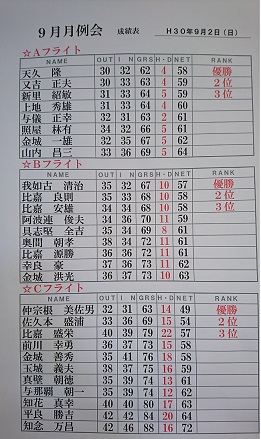 9月月例会 成績表 H30年9月2日(日)
☆Aフライト OUT I N GRS H・D NET RANK
天久 隆 30 32 62 4 58 優勝
又吉 正夫 30 33 63 4 59 2位
新里 紹敏 31 33 64 5 59 3位
上地 秀雄 31 33 64 4 60
与儀 正幸 32 31 63 2 61
照屋 林有 34 32 66 5 61
金城 一雄 32 35 67 5 62
山内 昌三 33 36 69 5 64
☆Bフライト OUT I N GRS H・D NET RANK
我如古 清治 35 32 67 10 57 優勝
比嘉 良則 33 35 68 10 58 2位
比嘉 安雄 34 34 68 10 58 3位
阿波連 俊夫 34 36 70 11 59
具志堅 全吉 35 34 69 8 61
奥間 朝孝 38 34 72 11 61
比嘉 源勝 36 36 72 11 61
幸良 豪 37 36 73 11 62
金城 洪光 36 37 73 10 63
☆Cフライト OUT I N GRS H・D NET RANK
仲宗根 美佐男 32 31 63 14 49 優勝
佐久本 盛浦 33 36 69 15 54 2位
比嘉 盛栄 40 39 79 22 57 3位
前川 幸勇 36 37 73 15 58
金城 善秀 35 41 76 18 58
玉城 義夫 38 37 75 16 59
真壁 朝徳 35 39 74 13 61
与那覇 朝一 35 39 74 12 62
知花 真幸 40 40 80 17 63
平良 勝吉 42 42 84 20 64
知念 万昌 42 46 88 16 72